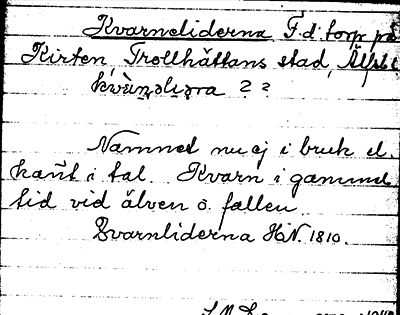 Kvarneliderna F.d. torp på
Kirten, Trollhättans stad, Älfsb
kvàn̥ḁlịɔra ? ?
Namnet nu ej i bruk el.
känt i tal. Kvarn i gammal
tid vid älven o. fallen
Qvarnliderna HöN. 1810.